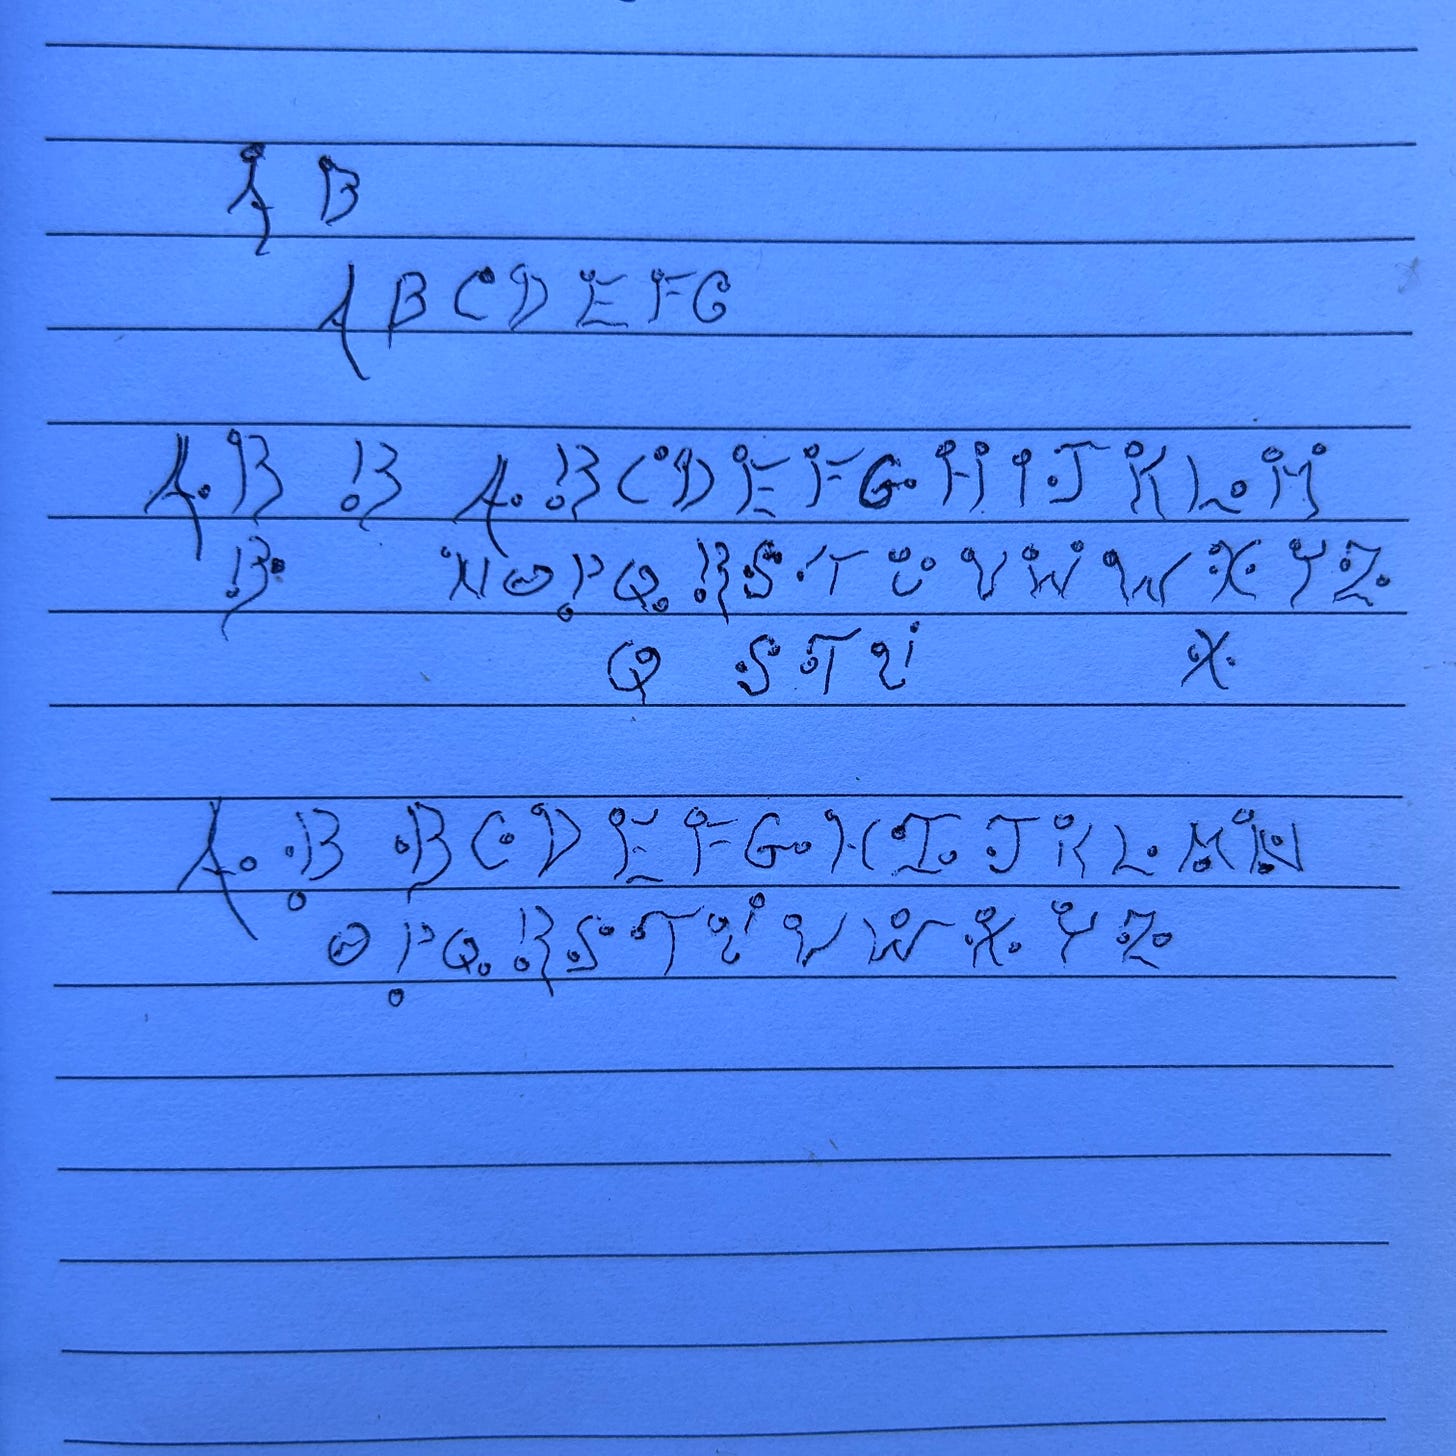 A B
A B C D E F G
A B B A B C D E F G H I J K L M
B N O P Q R S T U V W W X Y Z
Q S T U X
A B B C D E F G H I J K L M N
O P Q R S T U V W X Y Z